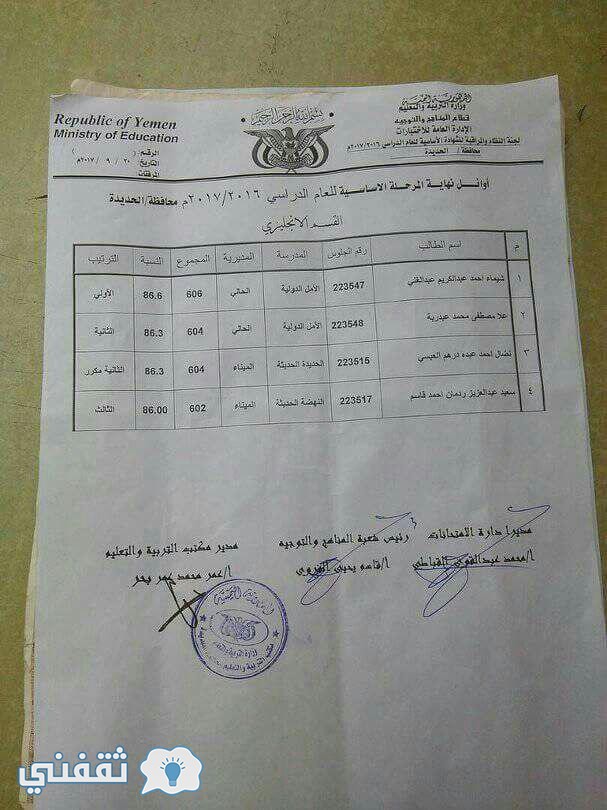 الجمهورية اليمنية
وزارة التربية والتعليم
قطاع المناهج والتوجيه
الإدارة العامة للأختبارات
لجنة النظام والمراقبة لشهادة الأساسية للعام الدراسي ٢٠١٧/٢٠١٦م
محافظة/ الحديدة
بسم الله الرحمن الرحيم
Republic of Yemen
Ministry of Education
الرقم: ( )
التاريخ ٢٠ / ٩ / ٢٠١٧م
المرفقات ( )
أوائل نهاية المرحلة الاساسية للعام الدراسي ٢٠١٧/٢٠١٦م محافظة/الحديدة
القسم الانجليزي
م اسم الطالب رقم الجلوس المدرسة المديرية المجموع النسبة الترتيب
١ شيماء احمد عبدالكريم عبدالغني 223547 الأمل الدولية الحالي 606 86.6 الأولي
٢ علا مصطفى محمد عبدربة 223548 الأمل الدولية الحالي 604 86.3 الثانية
٣ نضال احمد عبده درهم العبسي 223515 الحديدة الحديثة الميناء 604 86.3 الثانية مكرر
٤ سعيد عبدالعزيز ردمان احمد قاسم 223517 النهضة الحديثة الميناء 602 86.00 الثالث
مديرا دارة الامتحانات رئيس شعبة المناهج والتوجيه مدير مكتب التربية والتعليم
أ/محمد عبدالقوي القباطي أ/قاسم يحيى أ/عمر محمد عمر بحر
ثقفني